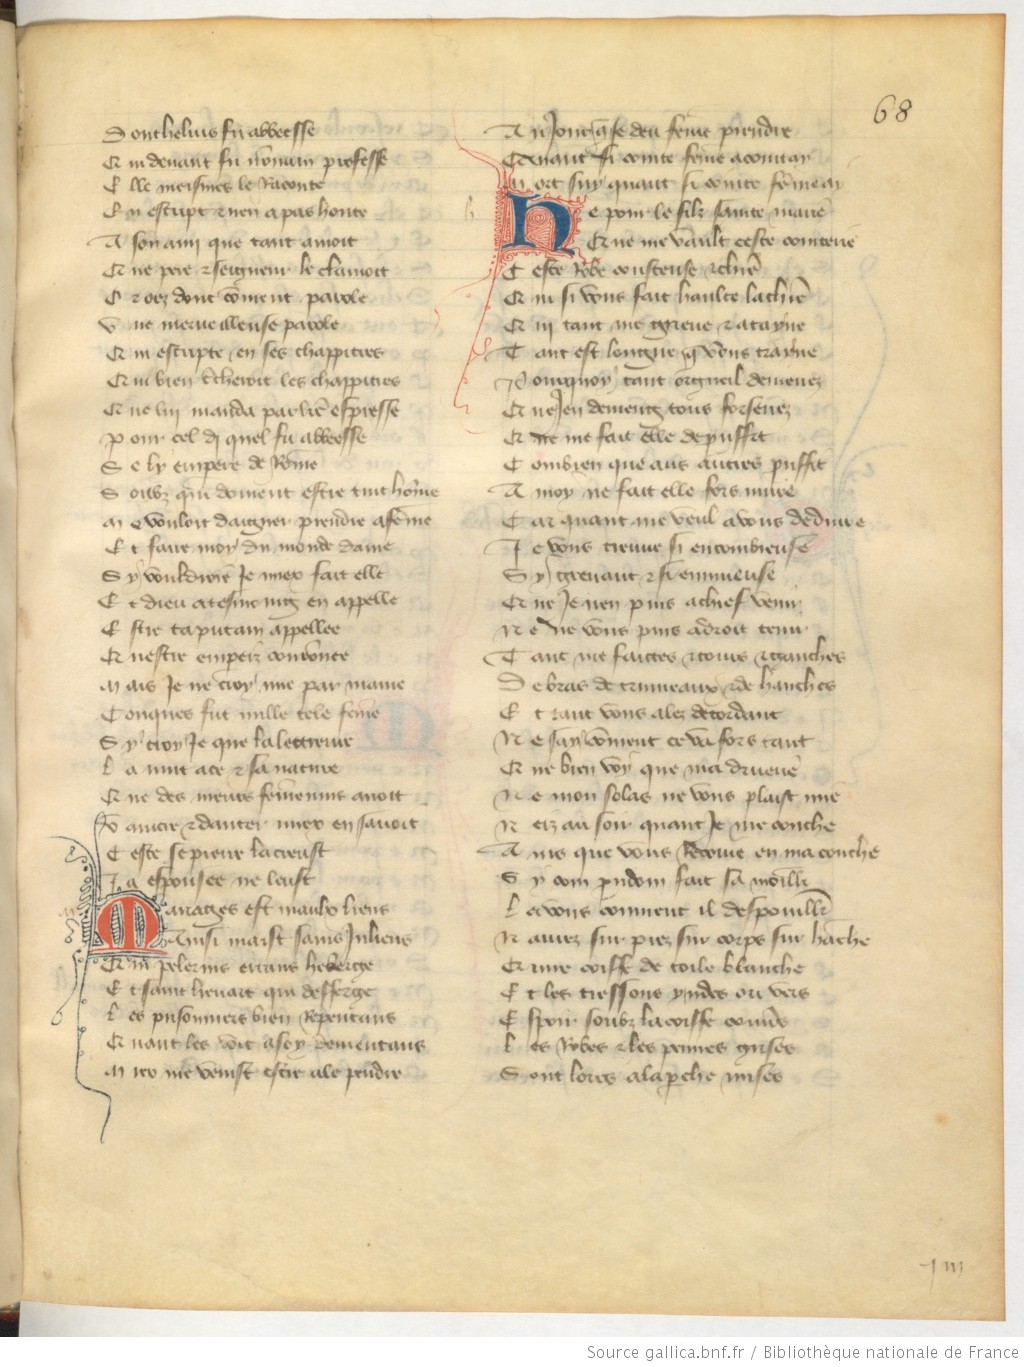 68
Dont heluis fu abbeesse
Et tu deuant fu nonain professe
Elle meismes le Raconte
En escript et nen a pas honte
A son ami que tant amoit
Et ne pere et seigneur le clamoit
Et oez dont coment parole
Vne merueilleuse parole
escripte en ses chappitres
Et bien cercheroit les chappitres
Et ne lui manda par lre espresse
Pour cel quel fu abbeesse
Se ly empere de Rome
Soubz qui doiuent estre tuit home
Me vouloit daigner prendre a feme
Et faire moy du monde dame
Sy vouldroie Je miex fait elle
Et dieu a tesmoing en appelle
Estre ta putain appellee
Et nestre emperiz couronee
Mais Je ne croy mie par mame
Conques fut nulle tele feme
Sy croy Je que la lettreure
La mist ace et sa nature
Et ne des meurs femenins auoit
Vaincre et danter miex en sauoit
Ceste se pierre la creust
Ja espousee ne leust
Mariages est maulx liens
Ainsi maist saint Juliens
Et pelerins errans heberge
Et saint lienart qui defferge
Les prisonniers bien Repentans
Et uant les voit a soy dementans
Miex me venist estre ale pendre
Au Jour que Je deu feme prendre
Et uant si cointe feme acointay
Mort suy quant si cointe feme ay
He pour le filz sainte marie
Et ne me vault ceste cointerie
Ceste Robe cousteuse et chiere
Et si vous fait haulce la chiere
Et tant me greue et atayne
Tant est longue que vous trayne
Pourquoy tant orgueil demenez
Et ne Jen demeng tous forsenez
Et me fait elle de pussit
Combien que aus autres pussit
A moy ne fait elle fors nuire
Car quant me veul a vous deduire
Je vous treuue si encombreuse
Sy greuant et si ennuieuse
Et ne Je nen puis achief venir
Ne ne vous puis adroit tenir
Tant me faictes et tours et ganches
De bras de trumeaux et de hanches
Et tant vous alez detordant
Ne say coment ce va fors tant
Et ne bien voy que ma druerie
Ne mon solas ne vous plaist mie
Neiz au soir quant Je me couche
Ains que vous Recoiue en ma couche
Sy com preudom fait sa moillr
La vous conuient il despoullr
Nauez sur piez sur corps sur hache
Et une coiffe de toile blanche
Et les tressons yndes ou vers
Espoir soubz la coiffe couuers
Les Robes et les pennes grises
Sont lores a la perche mises
Source gallica.bnf.fr / Bibliothèque nationale de France